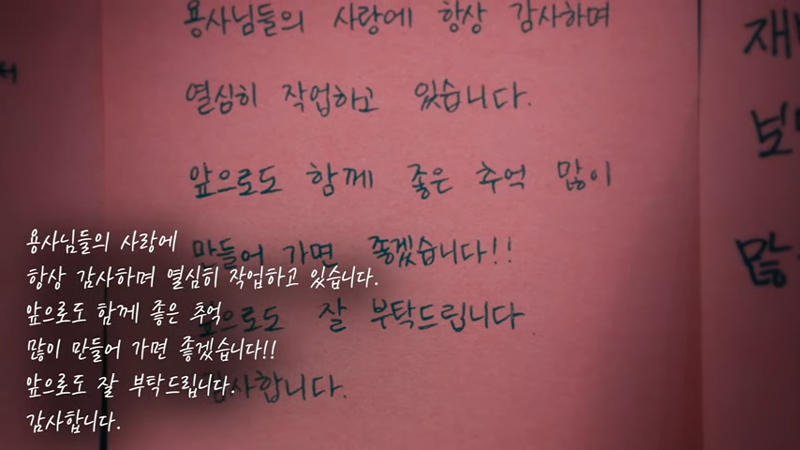 용사님들의 사랑에 항상 감사하며
열심히 작업하고 있습니다.
앞으로도 함께 좋은 추억 많이
만들어 가면 좋겠습니다!!
앞으로도 잘 부탁드립니다
감사합니다.
용사님들의 사랑에
항상 감사하며 열심히 작업하고 있습니다.
앞으로도 함께 좋은 추억
많이 만들어 가면 좋겠습니다!!
앞으로도 잘 부탁드립니다.
감사합니다.